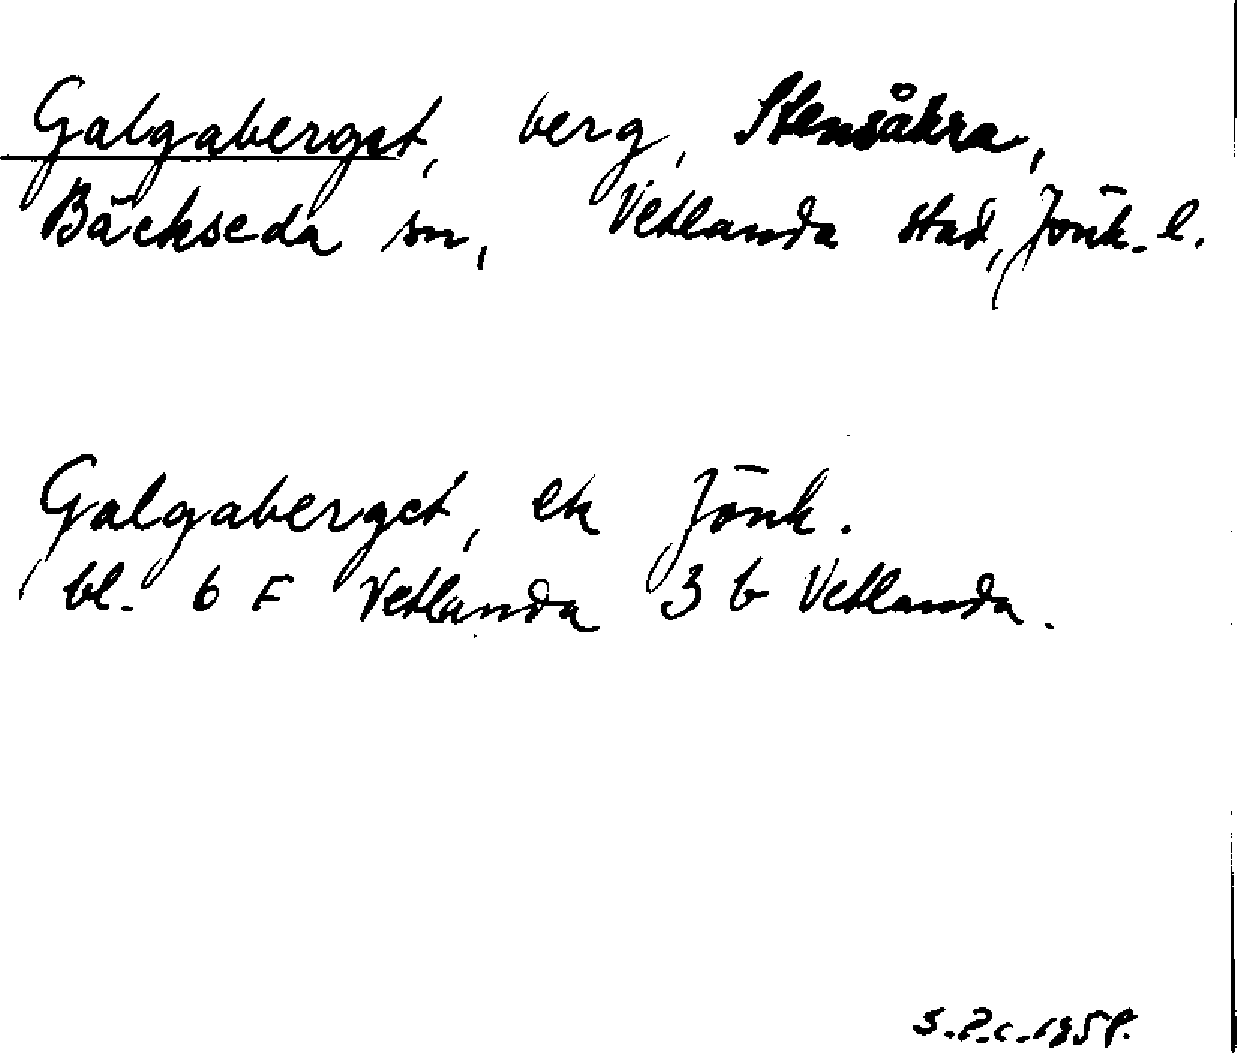 Galgaberget, berg, Stensåkra,
Bäckseda sn, Vetlanda stad, Jönk. l.
Galgaberget, ek Jönk.
bl. 6 F Vetlanda 3 b Vetlanda.